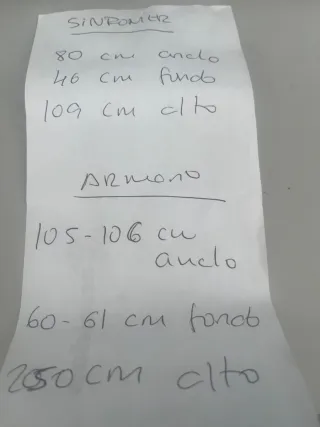 SINFONIER
80 cm ancho
46 cm fondo
109 cm alto
ARMARIO
105-106 cm
ancho
60-61 cm fondo
250 cm alto